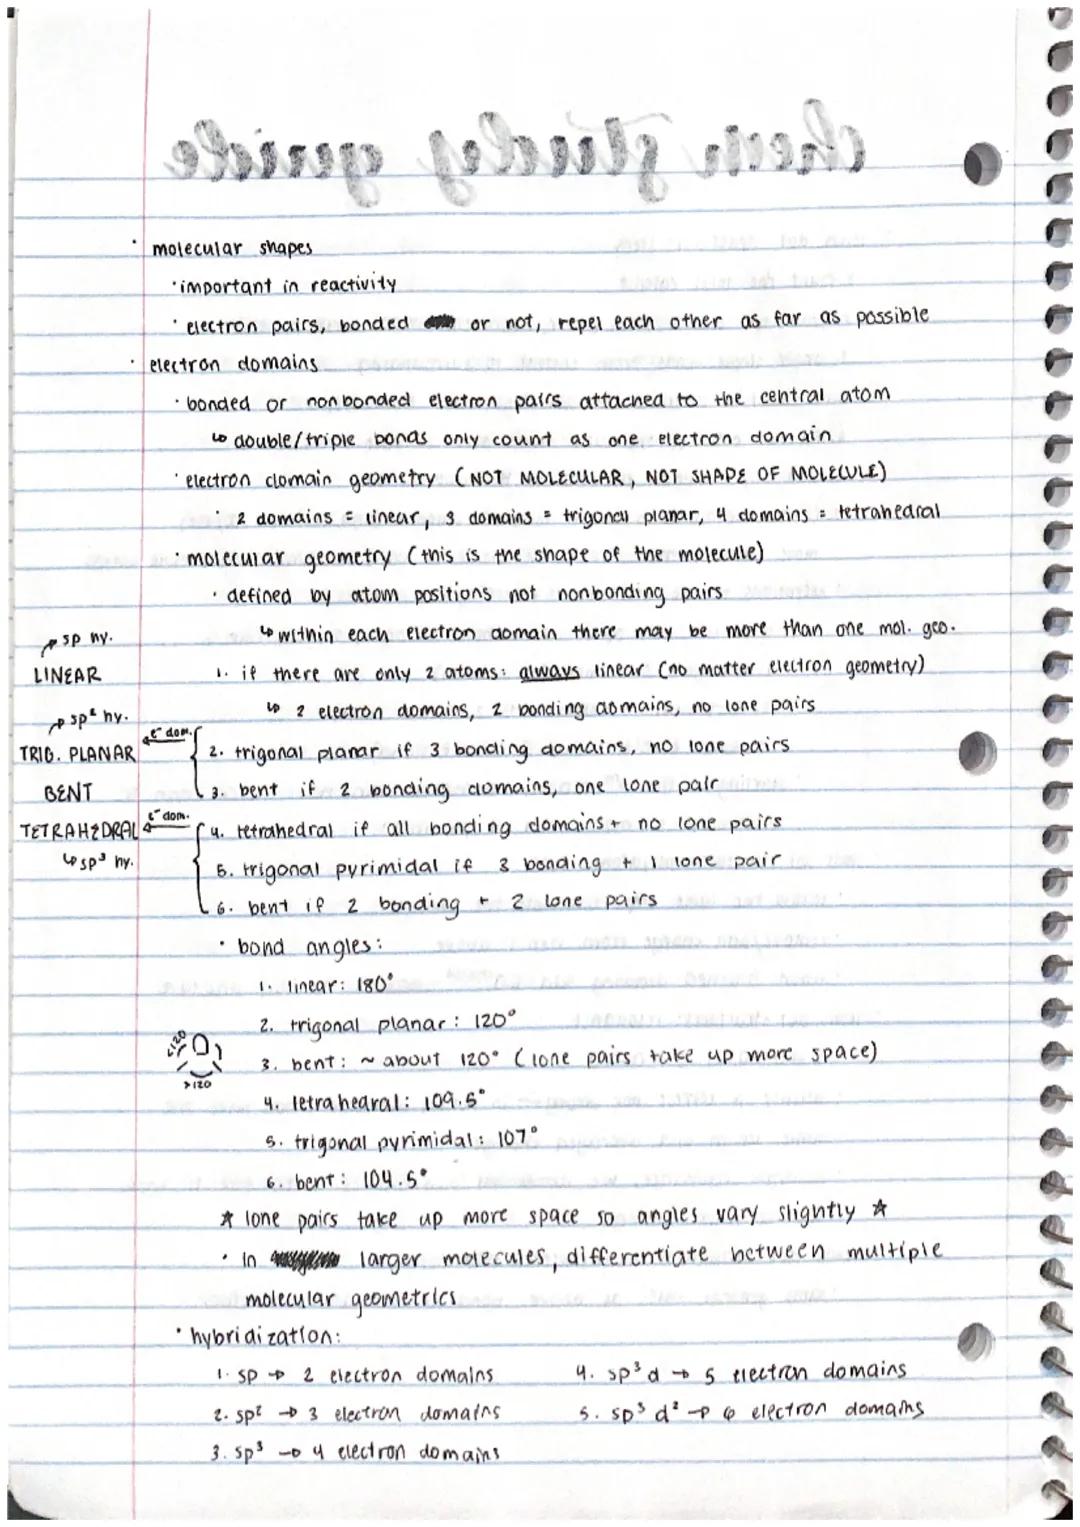 chem study guide
· molecular shapes
· important in reactivity
· electron pairs, bonded or not, repel each other as far as possible
· electron domains
· bonded or nonbonded electron pairs attached to the central atom
↳ double/triple bonds only count as one electron domain
· electron domain geometry (NOT MOLECULAR, NOT SHAPE OF MOLECULE)
· 2 domains = linear, 3 domains = trigonal planar, 4 domains = tetrahedral
· molecular geometry (this is the shape of the molecule)
· defined by atom positions not nonbonding pairs
↳ within each electron domain there may be more than one mol. geo.
sp hy.
LINEAR
1. if there are only 2 atoms: always linear (no matter electron geometry)
↳ 2 electron domains, 2 bonding domains, no lone pairs
sp² hy.
TRIG. PLANAR
e⁻ dom.
2. trigonal planar if 3 bonding domains, no lone pairs
BENT
3. bent if 2 bonding domains, one lone pair
TETRAHEDRAL
e⁻ dom.
4. tetrahedral if all bonding domains + no lone pairs
↳ sp³ hy.
5. trigonal pyrimidal if 3 bonding + 1 lone pair
6. bent if 2 bonding + 2 lone pairs
· bond angles:
1. linear: 180°
2. trigonal planar: 120°
<120
>120
3. bent: ~ about 120° (lone pairs take up more space)
4. tetrahedral: 109.5°
5. trigonal pyrimidal: 107°
6. bent: 104.5°
☆ lone pairs take up more space so angles vary slightly ☆
· In larger molecules, differentiate between multiple
molecular geometries
· hybridization:
1. sp → 2 electron domains
4. sp³d → 5 electron domains
2. sp² → 3 electron domains
5. sp³d² → 6 electron domains
3. sp³ → 4 electron domains